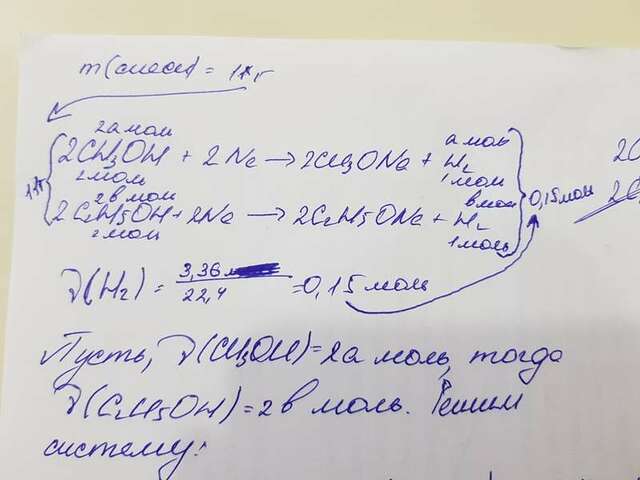 m(смеси) = 11г
2а моль а моль
11г 2CH3OH + 2Na → 2CH3ONa + H2
2 моль 1 моль
2в моль в моль
2C2H5OH + 2Na → 2C2H5ONa + H2 0,15 моль
2 моль 1 моль
ν(H2) = 3,36 / 22,4 = 0,15 моль
Пусть, ν(CH3OH) = 2а моль, тогда
ν(C2H5OH) = 2в моль. Решим
систему: